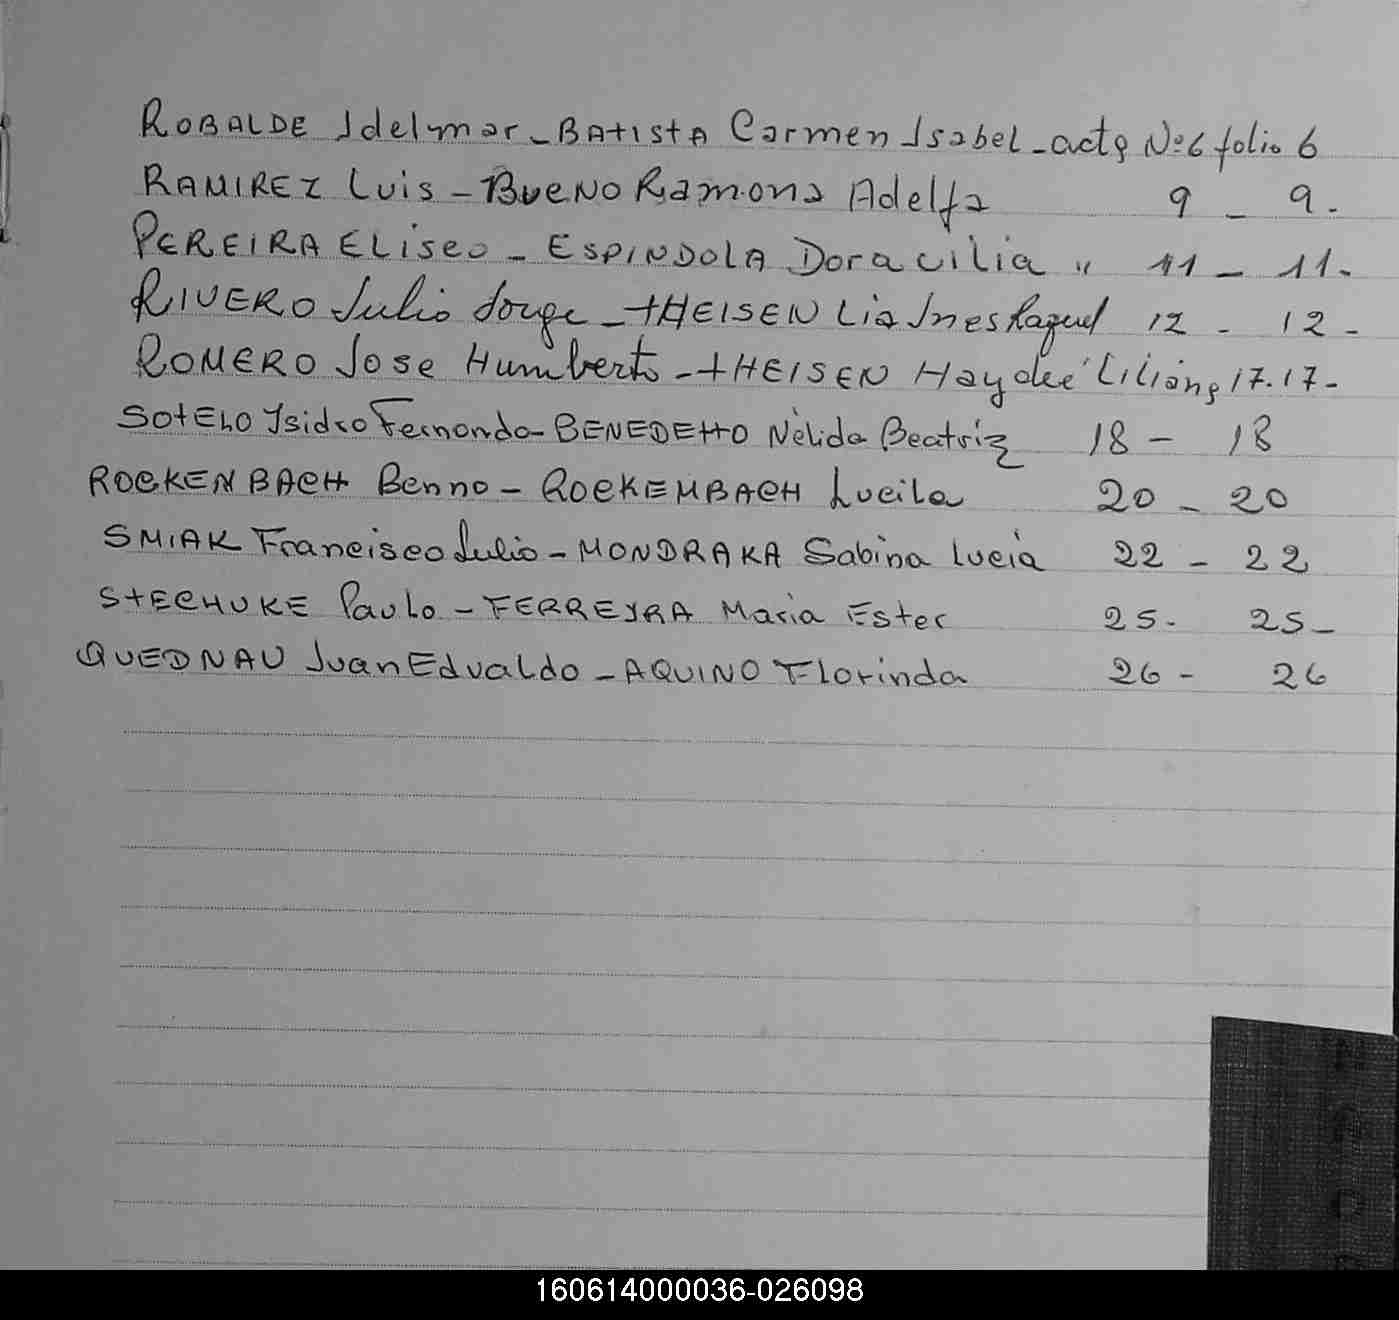 ROBALDE Idelmar - BATISTA Carmen Isabel - acta Nº 6 folio 6
RAMIREZ Luis - BUENO Ramona Adelfa 9 - 9.
PEREIRA ELISEO - ESPINDOLA Doracilia " 11 - 11.
RIVERO Julio Jorge - THEISEN Lia Ines Raquel 12 - 12 -
ROMERO Jose Humberto - THEISEN Haydeé Liliana 17. 17 -
SOTELO Isidro Fernando - BENEDETTO Nélida Beatriz 18 - 18
ROCKENBACH Benno - ROCKEMBACH Lucila 20 - 20
SMIAK Francisco Julio - MONDRAKA Sabina Lucía 22 - 22
STECHUKE Paulo - FERREYRA Maria Ester 25 - 25 -
QUEDNAU Juan Edualdo - AQUINO Florinda 26 - 26
160614000036-026098